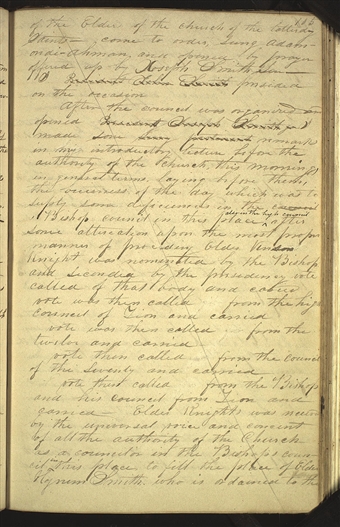 of the Elder of the church of the Latterday
Saints come to order, sung Adam-
ondi-ahman, and opened by prayer
offered up by Joseph Smith Sen
presided
on the occasion
After the council was organized and
opened
made some remarks
in an introductory before the
authority of the church, this morning,
in general terms, laying before them,
the business of the day which was to
supply some deficiencies in the
Bishop council in this place after
some altercation upon the most proper
manner of proceding Elder
Knight was nominated by the Bishop
and seconded by the presidency vote
called of that body and carried
vote was then called from the high
council of Zion and carried
vote was then called from the
twelve and carried
vote then called from the council
of the Seventy and carried
vote then called from the Bishop
and his council from Zion and
carried Elder Knights was received
by the universal voice and concent
of all the authority of the Church
as a councilor in the Bishops coun-
cil in this place to fill the place of Elder
Hyrum Smith, who is ordained to the